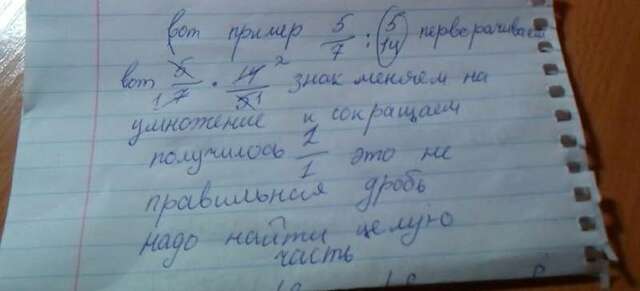 вот пример 5/7 : 5/14 переворачиваем
вот 5/7 · 14/5 2 1 1 знак меняем на
умножение и сокращаем
получилось 2/1 это не
правильная дробь
надо найти целую
часть